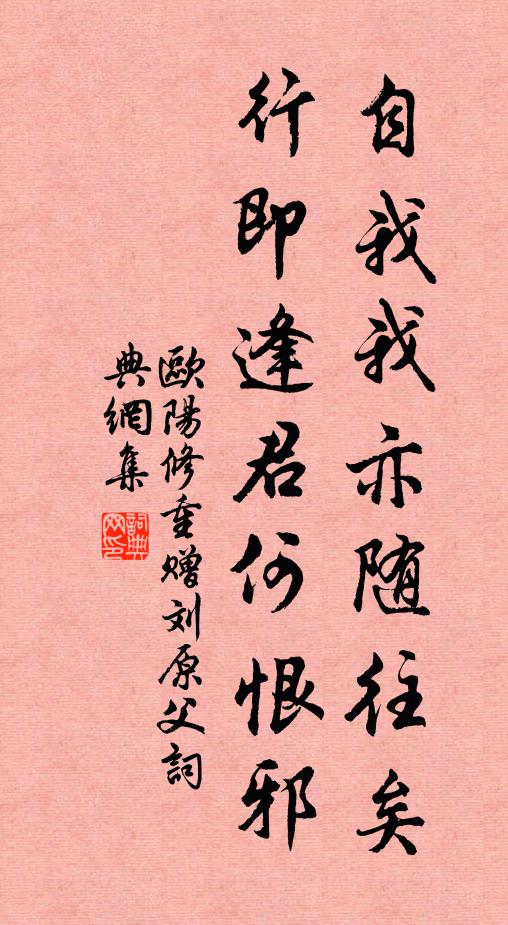 自我我亦随往矣
行即逢君何恨邪
歐陽修重赠刘原父詞
典網集
詞典网印